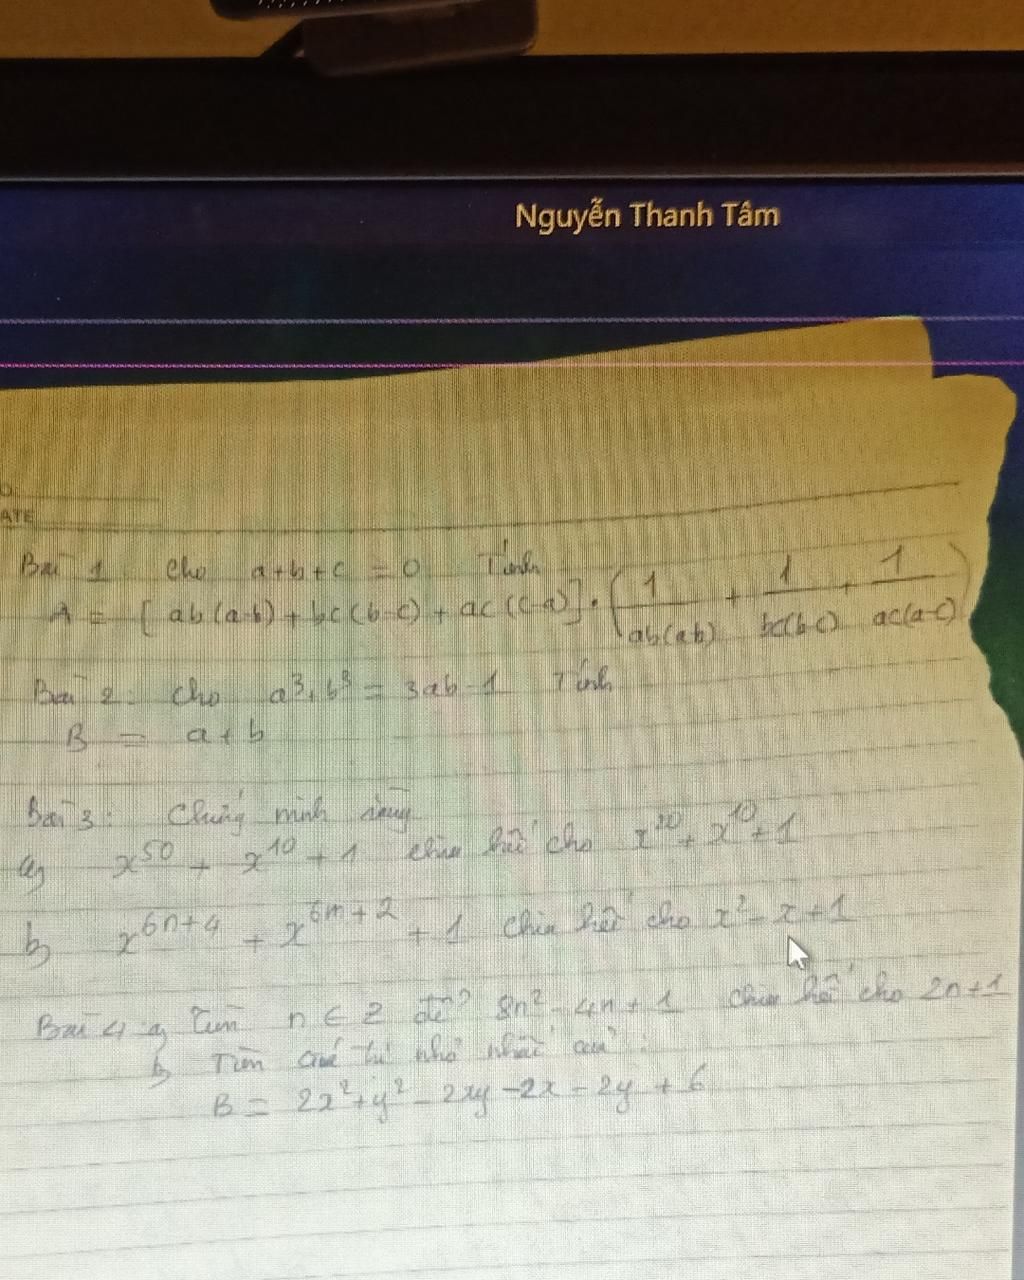 Nguyễn Thanh Tâm
ATE
Bài 1 Cho a+b+c = 0 Tính
A = [ab(a-b) + bc(b-c) + ac(c-a)] . (1/ab(ab) + 1/bc(b-c) + 1/ac(a-c))
Bài 2: Cho a³+b³ = 3ab-1 Tính
B = a+b
Bài 3: Chứng minh rằng
a, x⁵⁰ + x¹⁰ + 1 chia hết cho x²⁰ + x¹⁰ + 1
b, x⁶ⁿ⁺⁴ + x⁶ᵐ⁺² + 1 chia hết cho x² - x + 1
Bài 4 a, Tìm n ∈ Z để 8n² - 4n + 1 chia hết cho 2n+1
b, Tìm giá trị nhỏ nhất của:
B = 2x² + y² - 2xy - 2x - 2y + 6